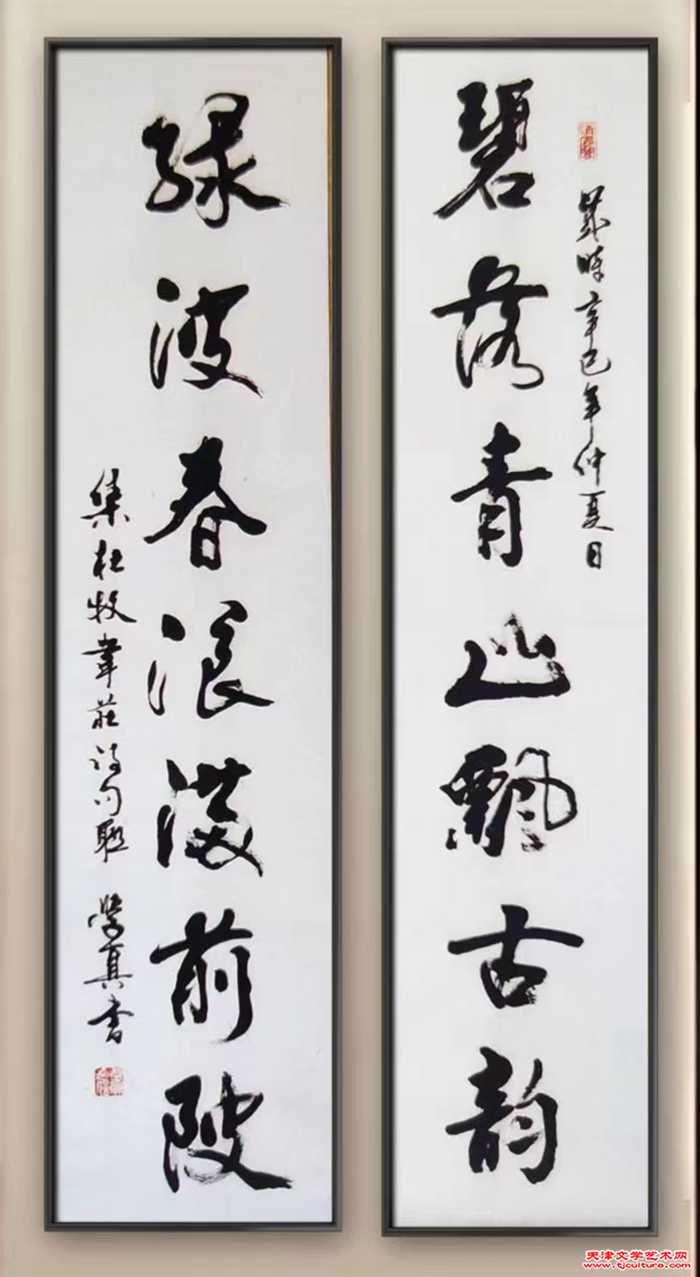 碧落青山飘古韵
岁時辛巳年仲夏日
緑波春浪满前陂
集杜牧韋莊诗句联
学真書
天津文学艺术网
www.tjculture.com